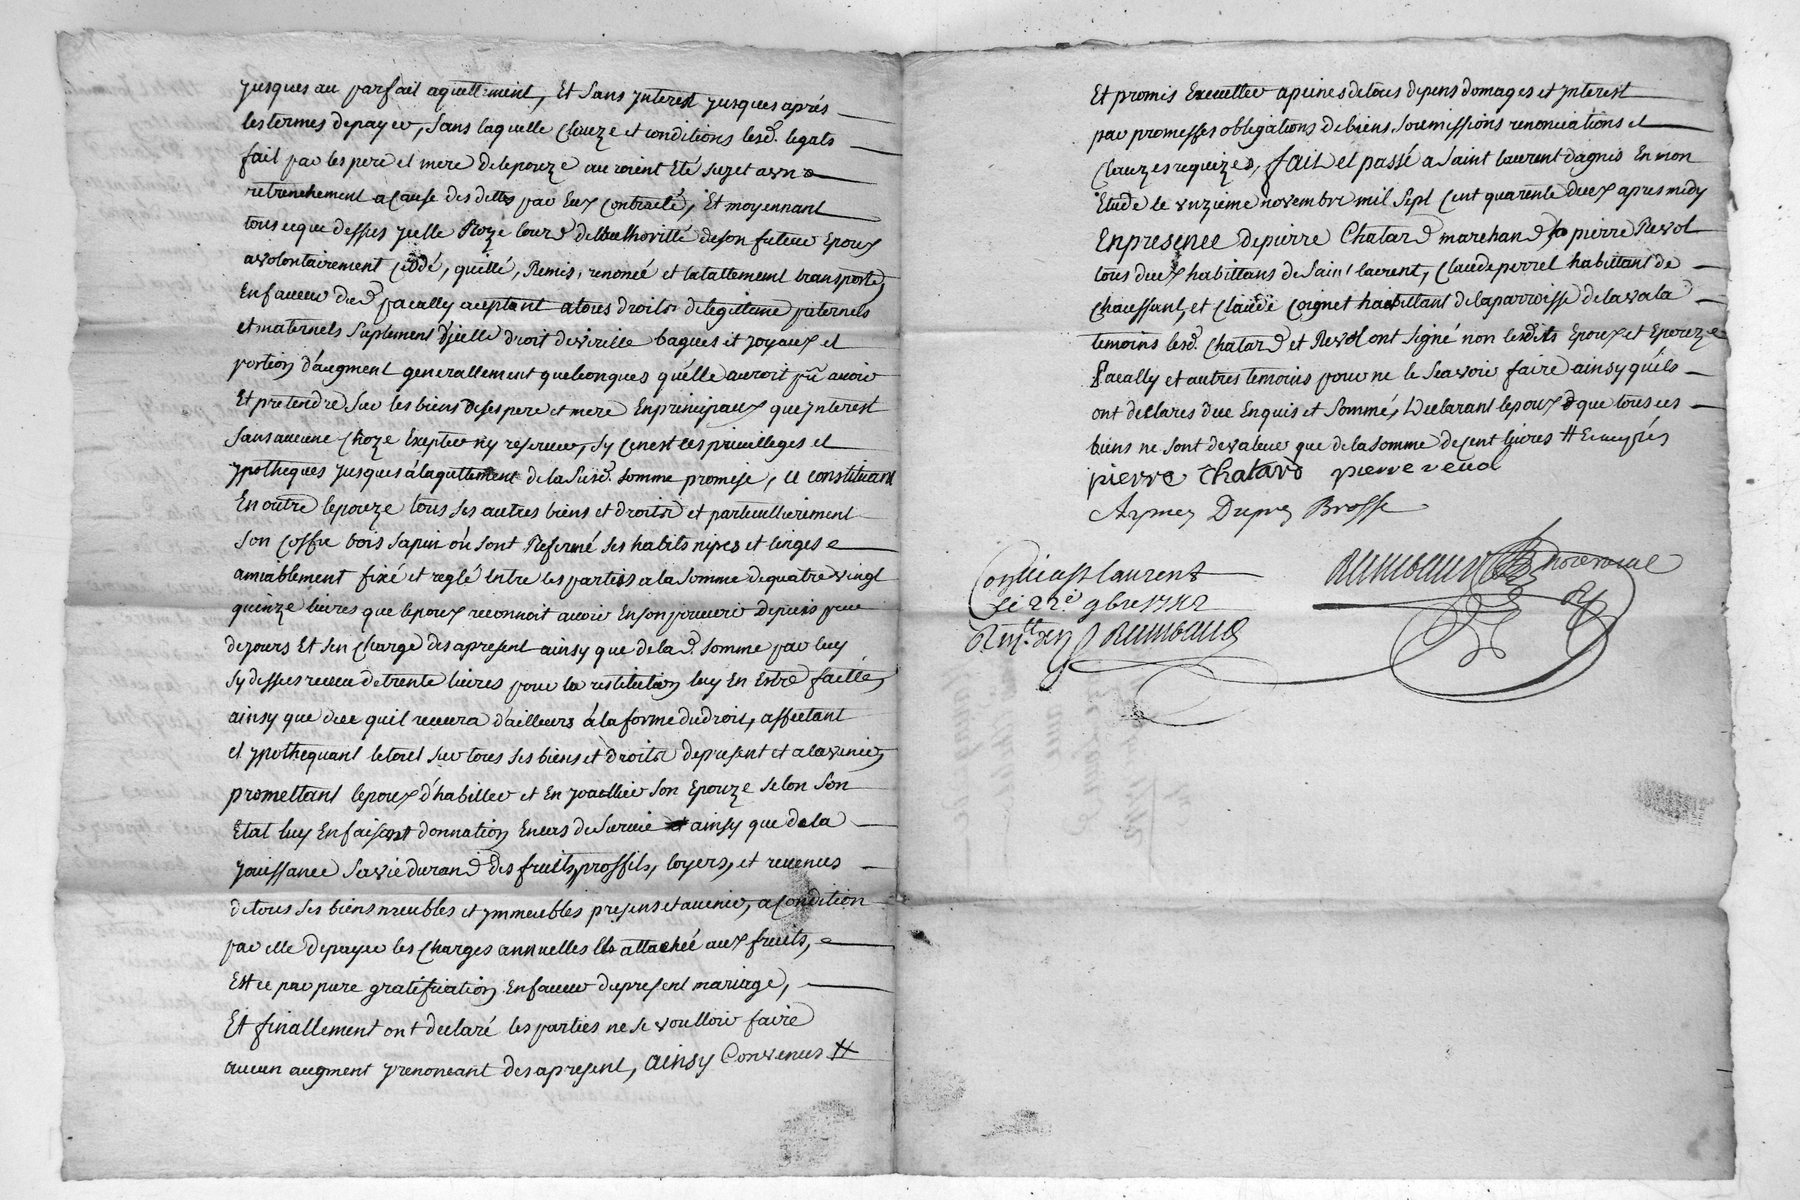 jusques au parfait aquittement, Et sans jnterest jusques aprés
les termes depayer, sans laquelle Clauze et conditions lesd. legats
fait par les pere et mere delepouze auroient Eté sujet a un
retrenchement a Cause des dettes par Eux Contractés, Et moyennant
tous ce que dessus jcelle Roze deson futeur Epoux
avolontairement Ceddé, quitté, Remis, renoncé et tatallement transporté
En faveur dud pacally aceptant atous droits delegitime paternels
et maternels suplement d'jcelle droit deviville bagues et joyaux et
portion d'augment generallement quelconques qu'élle auroit pû avoir
Et pretendre sur les biens deses pere et mere En principaux que jnterest
sans aucune choze Excepter ny reserver, sy Cenest les privilleges et
ypotheques jusques a laquittement de la susd. somme promise, se constituant
En outre lepouze tous ses autres biens et droits et particullierement
son Coffre bois sapin où sont Refermé ses habits nipes et linges
amiablement fixé et reglé Entre les parties a la somme dequatre vingt
quinze livres que lepoux reconnoit avoir En son pouvoir depuis peu
dejours Et sen Charge des apresent ainsy que de la d. somme par luy
sy dessus receue detrente livres pour la restitution luy En Estre faitte,
ainsy que dece quil recevra d'ailleurs à la forme du droit, affectant
et ypothequant letout sur tous ses biens et droits depresent et alavenir,
promettant lepoux d'habiller et En joailler son Epouze selon son
Etat luy En faisant donnation En cas de survie ainsy que de la
jouissance savie durand des fruits, proffits, loyers, et revenus
detous ses biens meubles et jmmeubles presens et avenir, a Condition
par elle depayer les Charges annuelles attachée aux fruits,
Est ce par pure gratification En faveur dupresent mariage,
Et finallement ont declaré les parties ne se voulloir faire
aucun augment y renonceant des apresent, ainsy Convenus #
Et promis Executter apeines detous depens domages et jnterest
par promesses obligations debiens soumissions renonciations et
Clauzes requizes, fait et passé a Saint laurent dagnis En mon
Etude le vnzieme novembre mil sept Cent quarente deux apres midy
En presence depierre Chatard marchand pierre Revol
tous deux habittans de Saint laurent, Claude perret habittant de
Chaussant, et Claude Coignet habittant de la parroisse de lavala
temoins lesd. Chatard et Revol ont signé non lesdits Epoux et Epouze
Pacally et autres temoins pour ne le scavoir faire ainsy quils
ont declares dee Enquis et sommé, Declarant lepoux que tous ces
biens ne sont devaleur que de la somme decent livres #
pierre Chatard pierre revol
Brosse
st laurent
le 22e 9bre 1742
Rambaud
Rambaud